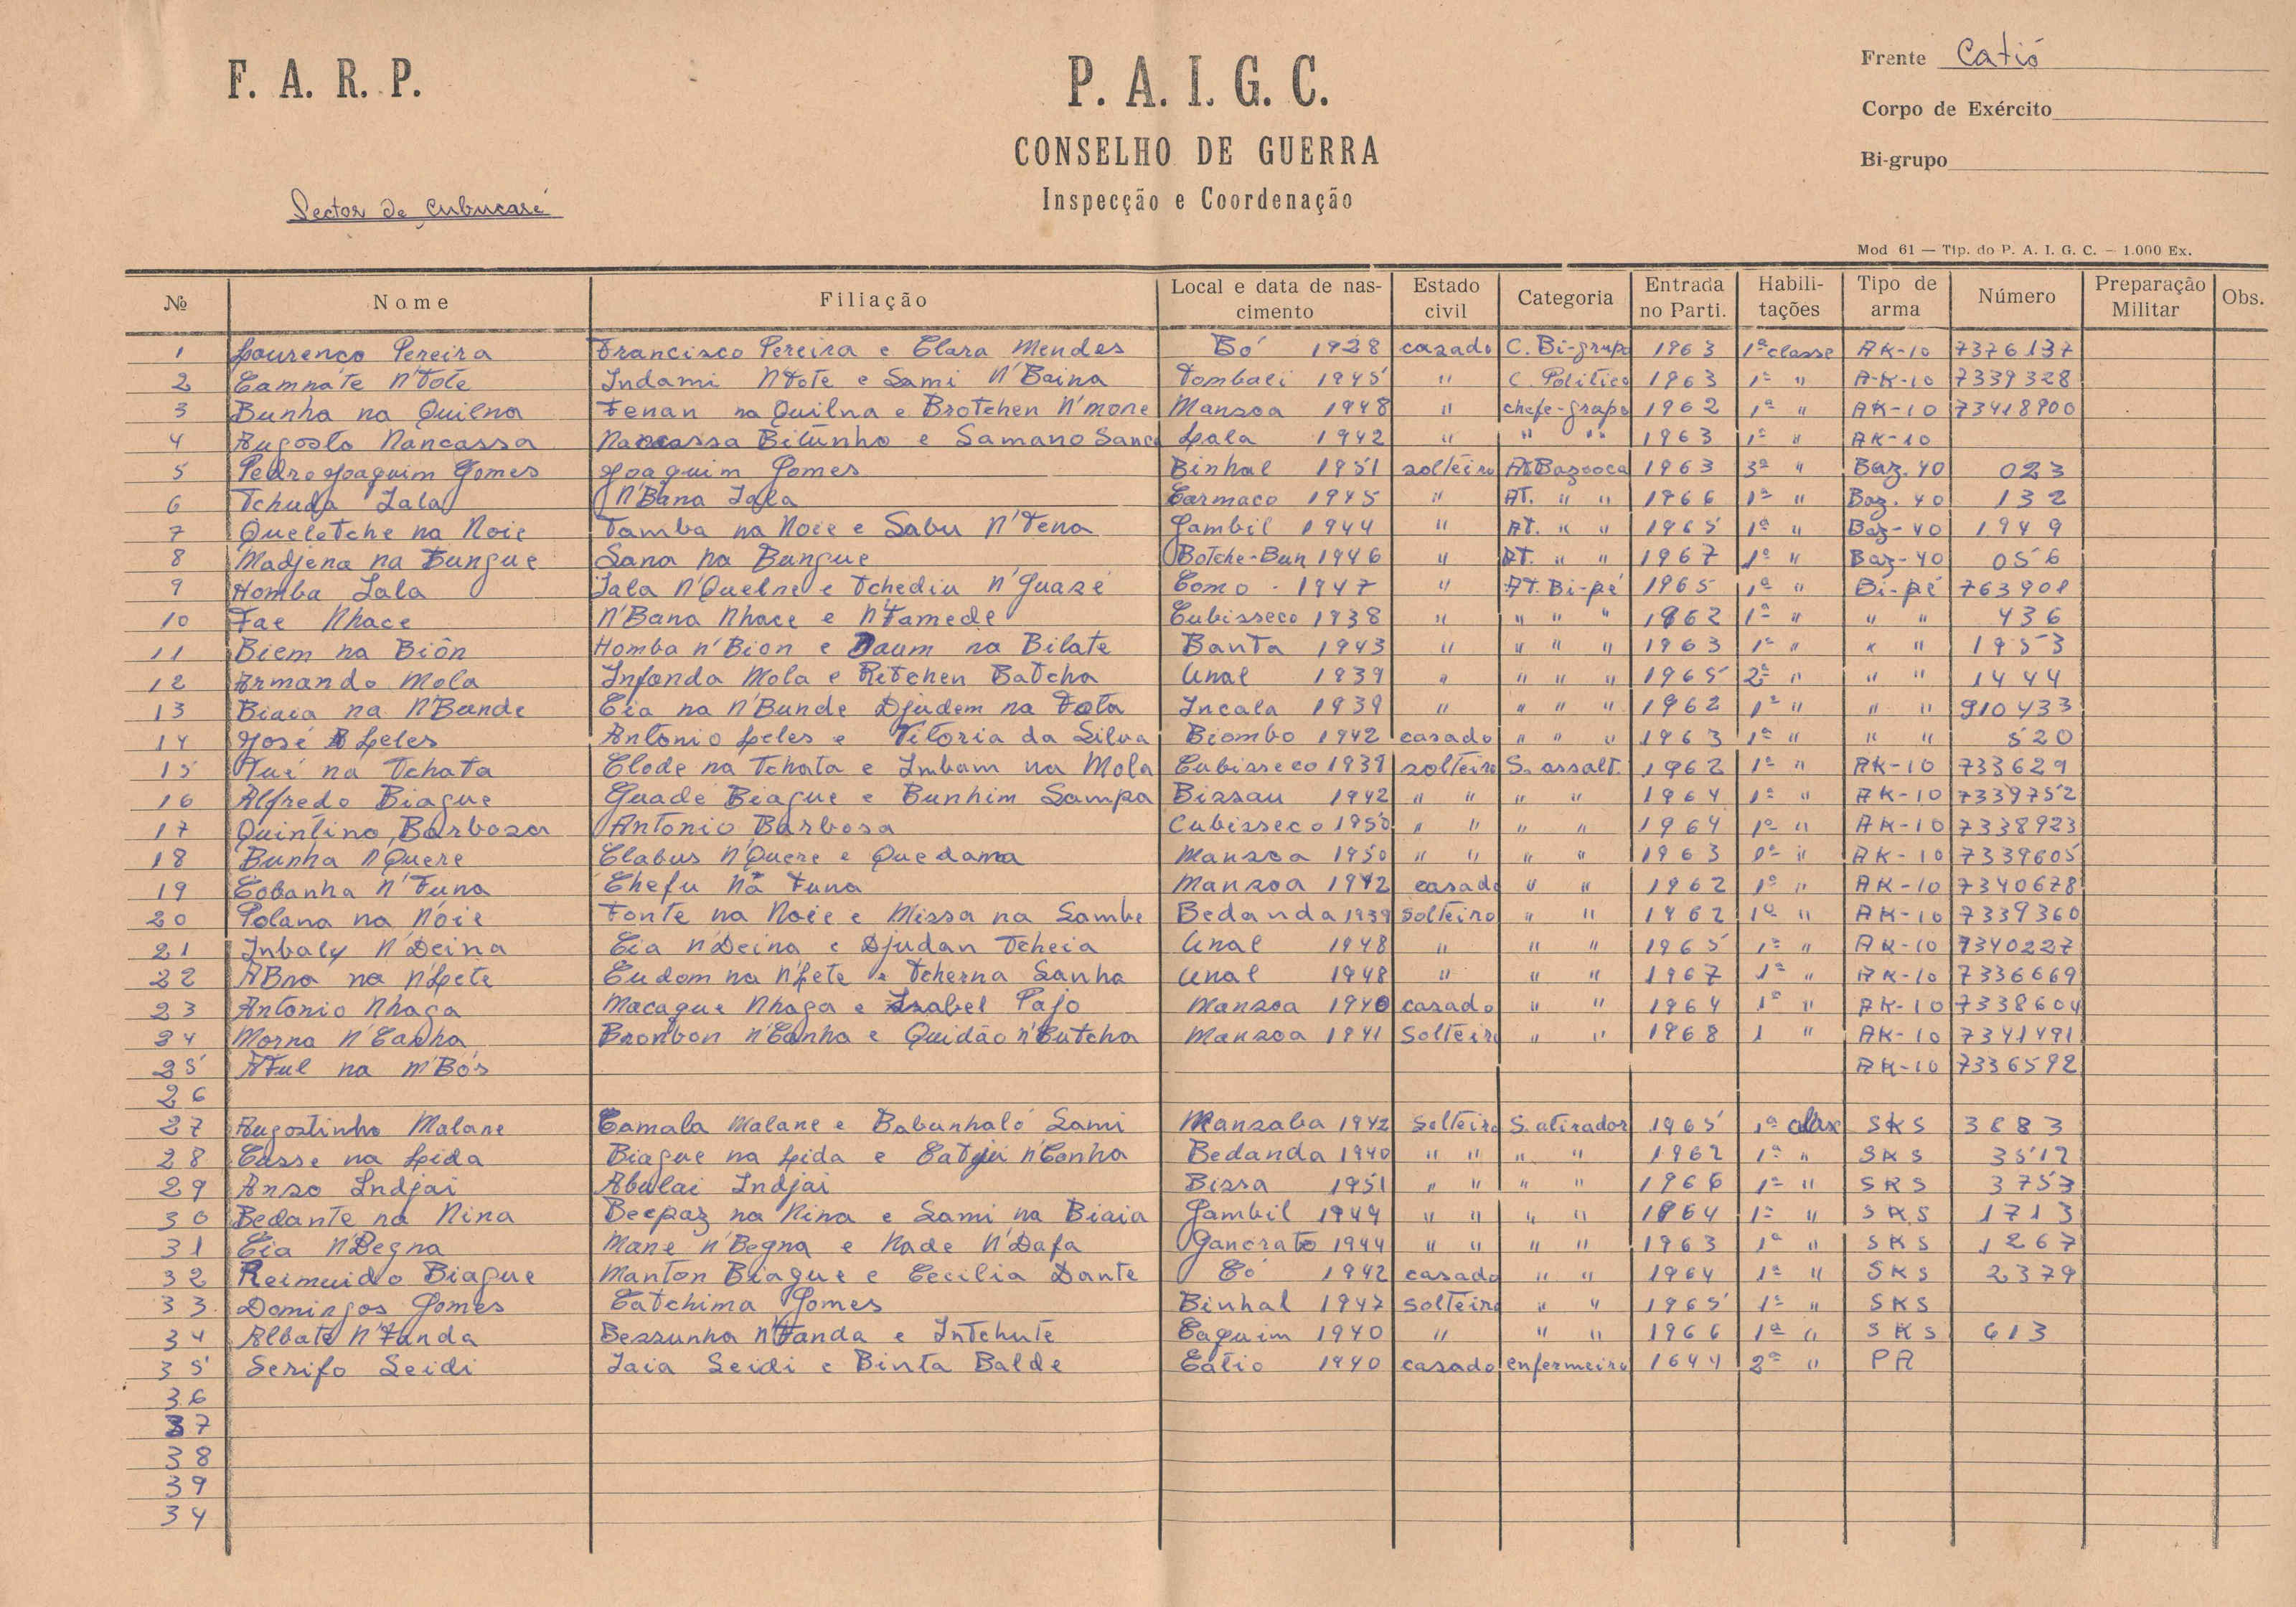 F. A. R. P.
P. A. I. G. C.
CONSELHO DE GUERRA
Inspecção e Coordenação
Frente Catió
Corpo de Exército
Bi-grupo
Sector de Cubucaré
Mod 61 — Tip. do P. A. I. G. C. — 1.000 Ex.
№ Nome Filiação Local e data de nascimento Estado civil Categoria Entrada no Parti. Habilitações Tipo de arma Número Preparação Militar Obs.
1 Lourenço Pereira Francisco Pereira e Clara Mendes Bó 1928 casado C. Bi-grupo 1963 1ª classe AK-10 7376137
2 Camnáte N'Tote Indami N'Tote e Sami N'Baina Tombali 1945 " C. Politico 1963 1ª " A-K-10 7339328
3 Bunha na Quilna Tenan na Quilna e Brotchen N'mone Mansoa 1948 " chefe-grupo 1962 1ª " AK-10 73418900
4 Augosto Nancassa Nancassa Bitúnho e Samano Sanca Lala 1942 " " " 1963 1ª " AK-10
5 Pedro Joaquim Gomes Joaquim Gomes Binhal 1951 solteiro At Bazooca 1963 3ª " Baz. 40 023
6 Tchuda Lala N'Bana Lala Carmaco 1945 " AT. " " 1966 1ª " Baz. 40 132
7 Queletche na Noie Tamba na Noie e Sabu N'Tena Gambil 1944 " AT. " " 1965 1ª " Baz-40 1949
8 Madjena na Bungue Sana na Bungue Botche-Bun 1946 " AT. " " 1967 1ª " Baz-40 056
9 Homba Lala Lala N'Quelne e Tchediu N'Guaré Como - 1947 " AT. Bi-pé 1965 1ª " Bi-pé 763901
10 Fae Nhace N'Bana Nhace e N'Famede Cubisseco 1938 " " " " 1962 1ª " " " 436
11 Biem na Biôn Homba n'Bion e Daum na Bilate Banta 1943 " " " " 1963 1ª " " " 1953
12 Armando Mola Infanda Mola e Ritchen Batcha Unal 1939 " " " " 1965 2ª " " " 1444
13 Biaia na N'Bunde Cia na N'Bunde Djudem na Tota Incala 1939 " " " " 1962 1ª " " " 910433
14 José Leles Antonio Leles e Vitoria da Silva Biombo 1942 casado " " " 1963 1ª " " " 520
15 Tué na Tchata Clode na Tchata e Imbam na Mola Cubisseco 1939 solteiro S. assalt. 1962 1ª " AK-10 733629
16 Alfredo Biague Guade Biague e Bunhim Sampa Bissau 1942 " " " " 1964 1ª " AK-10 7339752
17 Quintino Barbosa Antonio Barbosa Cubisseco 1950 " " " " 1964 1ª " AK-10 7338923
18 Bunha N'Quere Clabus N'Quere e Quedama Mansoa 1950 " " " " 1963 1ª " AK-10 7339605
19 Cobanha N'Tuna Chefu Nã Tuna Mansoa 1942 casado " " 1962 1ª " AK-10 7340678
20 Polana na Nóie Fonte na Noie e Missa na Sambe Bedanda 1939 solteiro " " 1962 1ª " AK-10 7339360
21 Inbaly N'Deina Cia n'Deina e Djudan Tcheia Unal 1948 " " " 1965 1ª " AK-10 7340227
22 ABna na N'Lete Cudom na N'Lete e Tcherna Sanha Unal 1948 " " " 1967 1ª " AK-10 7336669
23 Antonio Nhaga Macague Nhaga e Izabel Pajo Mansoa 1940 casado " " 1964 1ª " AK-10 7338604
24 Morna N'Canha Bronbon n'Canha e Quidão n'Butcha Mansoa 1941 Solteiro " " 1968 1 " AK-10 7341491
25 NTul na m'Bós AK-10 7336592
26
27 Augostinho Malane Camala Malane e Babunhaló Sami Mansaba 1942 Solteiro S. atirador 1965 1ª SKS 3683
28 Casse na Lida Biague na Lida e n'Conha Bedanda 1940 " " " " 1962 1ª " SKS 3512
29 Anso Indjai Abulai Indjai Bissa 1951 " " " " 1966 1ª " SKS 3753
30 Bedante na Nina Beepaz na Nina e Sami na Biaia Gambil 1949 " " " " 1964 1ª " SKS 1713
31 Cia N'Begna Mane n'Begna e Nade N'Dafa Gancrato 1944 " " " " 1963 1ª " SKS 1267
32 Reimuido Biague Manton Biague e Cecilia Dante Có 1942 casado " " 1964 1ª " SKS 2379
33 Domingos Gomes Catchima Gomes Binhal 1947 Solteiro " " 1965 1ª " SKS
34 Albate N'Fanda Bessunha N'Fanda e Intchute Caquim 1940 " " " 1966 1ª " SKS 613
35 Serifo Seidi Iaia Seidi e Binta Balde Catio 1940 casado enfermeiro 1644 2ª " PA
36
37
38
39
34